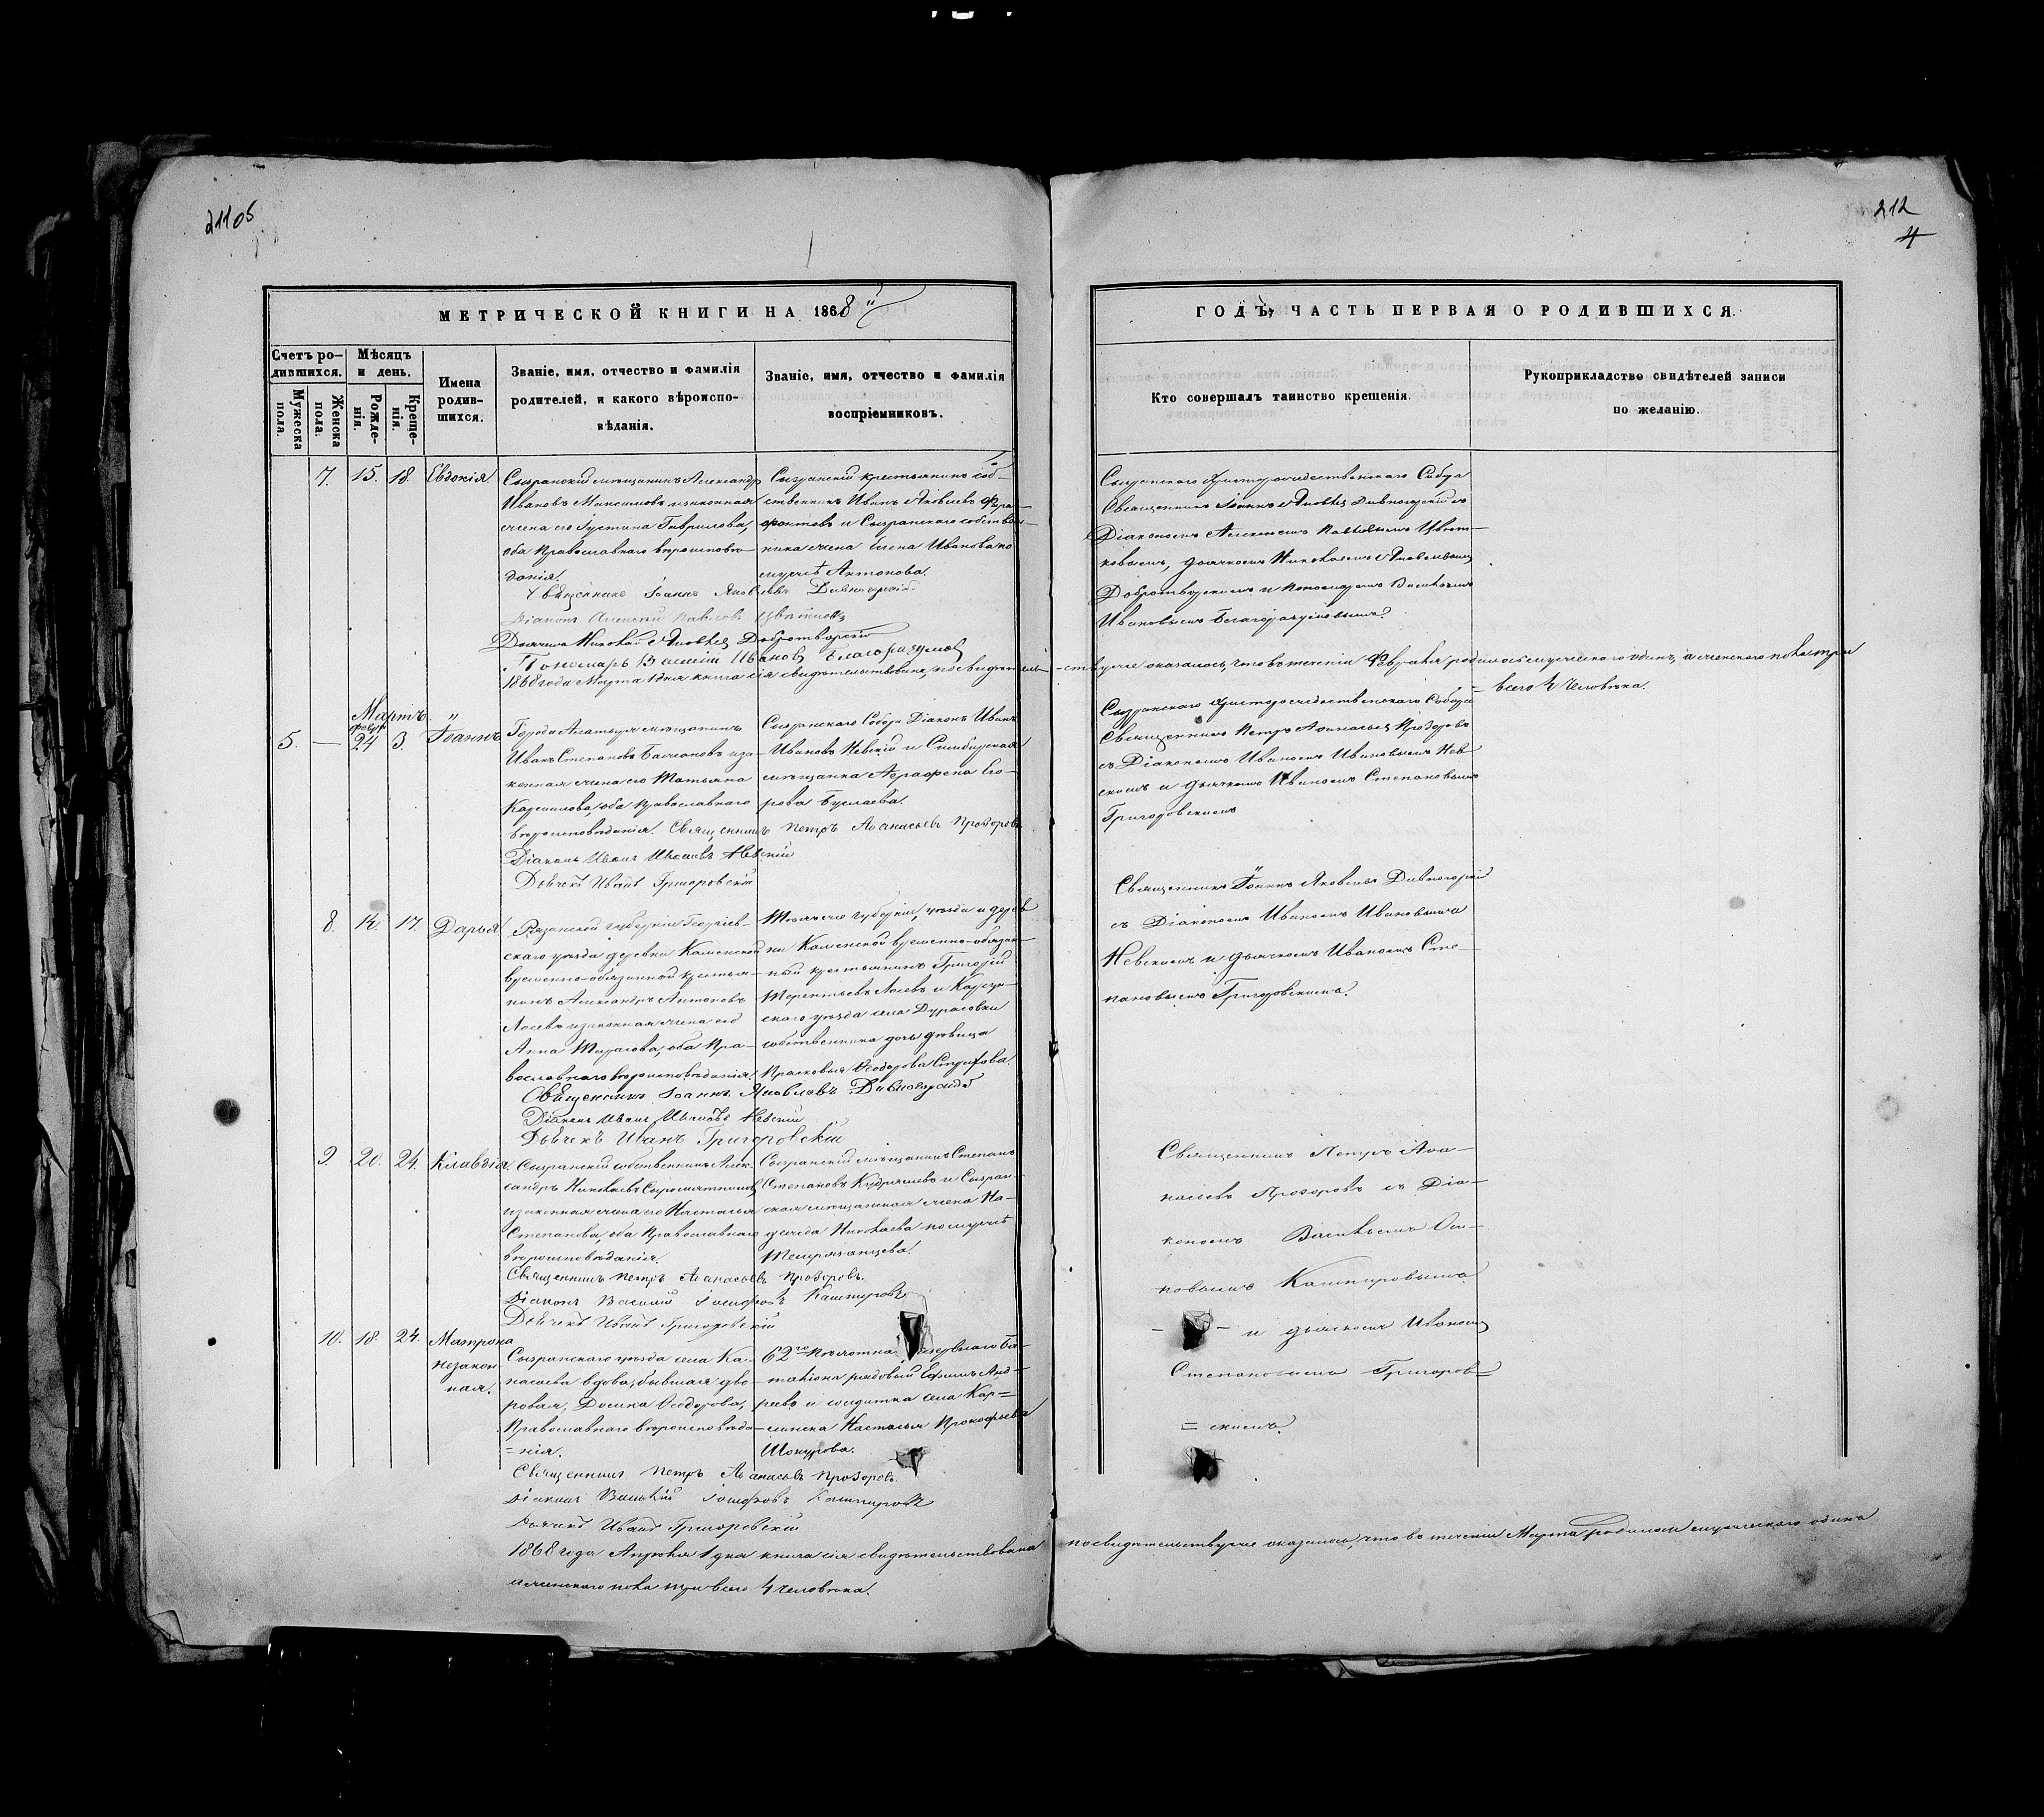 211 об
212
4
МЕТРИЧЕСКОЙ КНИГИ НА 1868й
ГОДЪ, ЧАСТЬ ПЕРВАЯ О РОДИВШИХСЯ.
Счетъ ро-
дившихся.
Мужеска
пола.
Женска
пола.
Мѣсяцъ
и день.
Рожде-
нія.
Креще-
нія.
Имена
родив-
шихся.
Званіе, имя, отчество и фамилія
родителей, и какого вѣроиспо-
вѣданія.
Званіе, имя, отчество и фамилія
воспріемниковъ.
Кто совершалъ таинство крещенія.
Рукоприкладство свидѣтелей записи
по желанію.
7. 15. 18. Евдокія
Сызранскій мѣщанинъ Александръ
Ивановъ Максимовъ и законная
жена его Іустина Гаврилова,
оба Православнаго вѣроисповѣ-
данія.
Сызранскій крестьянинъ соб-
ственникъ Иванъ Яковлевъ
и Сызранскаго собствен-
ника жена Елена Иванова по
мужѣ Антонова.
Сызранскаго Христорождественскаго Собора
Священникъ Іоаннъ Яковлевъ Дивногорскій съ
Діакономъ Алексеемъ Павловымъ Цвѣт-
ковымъ, дьячкомъ Николаемъ Яковлевымъ
Добротворскимъ и пономаремъ Василіемъ
Ивановымъ Благоразумовымъ.
Священникъ Іоаннъ Яковлевъ Дивногорскій.
Діаконъ Алексей Павловъ Цвѣтковъ
Дьячекъ Николай Яковлевъ Добротворскій
Пономарь Василій Ивановъ Благоразумовъ
1868 года Марта 1 дня книга сія свидѣтельствована, по свидѣтель-
ствуже оказалось, что въ теченіи Февраля родилось мужескаго одинъ, а женскаго пола три
= всего 4 человѣка.
Мартъ
5. — Февр. 24 3. Іоаннъ
Города Алатыря мѣщанинъ
Иванъ Степановъ и за-
конная жена его Татьяна
оба православнаго
вѣроисповѣданія.
Сызранскаго Собора Діаконъ Иванъ
Ивановъ Невскій и Симбирская
мѣщанка Аграфена Его-
рова Буслаева.
Сызранскаго Христорождественскаго Собора
Священникъ Петръ Аѳанасьевъ Прозоровъ
съ Діакономъ Иваномъ Ивановымъ Нев-
скимъ и дьячкомъ Иваномъ Степановымъ
Григоровскимъ
Священникъ Петръ Аѳанасьевъ Прозоровъ
Діаконъ Иванъ Ивановъ Невскій
Дьячекъ Иванъ Григоровскій
8. 14. 17. Дарья
Рязанской губерніи
скаго уѣзда деревни Каменской
временно-обязанной крестья-
нинъ Александръ Антоновъ
Лосевъ и законная жена его
Анна Тарасова, оба Пра-
вославнаго вѣроисповѣданія.
Той же губерніи, уѣзда и дерев-
ни Каменской временно-обязан-
ный крестьянинъ Григорій
Терентьевъ Лосевъ и Карсун-
скаго уѣзда села Дурасовки
собственника дочь дѣвица
Прасковья Ѳеодорова
Священникъ Іоаннъ Яковлевъ Дивногорскій
съ Діакономъ Иваномъ Ивановымъ
Невскимъ и дьячкомъ Иваномъ Сте-
пановымъ Григоровскимъ.
Священникъ Іоаннъ Яковлевъ Дивногорскій
Діаконъ Иванъ Ивановъ Невскій
Дьячекъ Иванъ Григоровскій
9. 20. 24. Клавдія
Сызранскій собственникъ Алек-
сандръ Николаевъ Сыромятниковъ
и законная жена его Настасья
Степанова, оба Православнаго
вѣроисповѣданія.
Сызранскій мѣщанинъ Степанъ
Степановъ Кудряшевъ и Сызран-
ская мѣщанская жена На-
дежда Николаева по мужѣ
Священникъ Петръ Аѳа-
насьевъ Прозоровъ съ Діа-
кономъ Васильемъ Оси-
повымъ Кашпировымъ
— и дьячкомъ Иваномъ
Степановымъ Григоров=
= скимъ.
Священникъ Петръ Аѳанасьевъ Прозоровъ.
Діаконъ Василій Іосифовъ Кашпировъ
Дьячекъ Иванъ Григоровскій
10. 18. 24. Матрона
незакон-
ная.
Сызранскаго уѣзда села Ка-
насаева вдова, бывшая дво-
ровая, Домна Ѳеодорова,
Православнаго вѣроисповѣда-
= нія.
62го Пѣхотнаго резервнаго ба-
таліона рядовый Ефимъ Анд-
реевъ и солдатка села Кар=
линска Настасья Прокофьева
Шокурова.
Священникъ Петръ Аѳанасьевъ Прозоровъ.
Діаконъ Василій Іосифовъ Кашпировъ
Дьячекъ Иванъ Григоровскій
1868 года Апрѣля 1 дня книга сія свидѣтельствована
по свидѣтельствуже оказалось, что въ теченіи Марта родилось мужескаго одинъ
а женскаго пола три всего 4 человѣка.